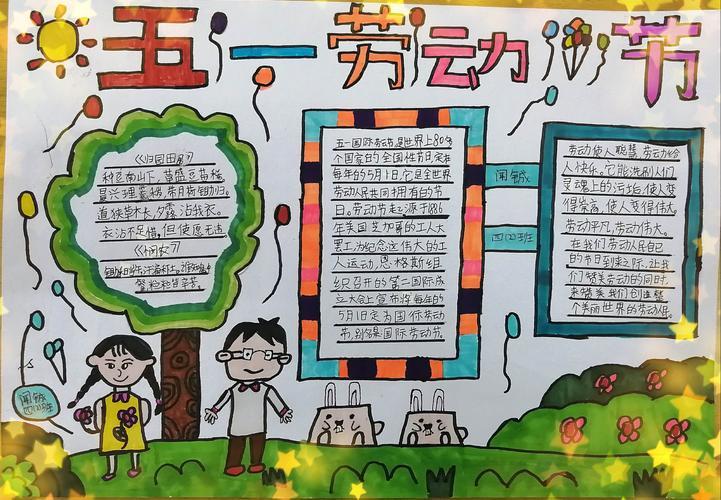 五一劳动节
《归园田居》
种豆南山下,草盛豆苗稀。
晨兴理荒秽,带月荷锄归。
道狭草木长,夕露沾我衣。
衣沾不足惜,但使愿无违
《悯农》
锄禾日当午,汗滴禾下土。
粒粒皆辛苦。
五一国际劳动节是世界上80多
个国家的全国性节日,定在
每年的5月1日,它是全世界
劳动人民共同拥有的节
日。劳动节起源于1886
年美国芝加哥的工人大
罢工,为纪念这伟大的工
人运动,恩格斯组
织召开的第二国际成
立大会上宣布将每年的
5月1日定为国际劳动
节,别名是国际劳动节。
四(2)班
劳动使人聪慧,劳动给
人快乐。它能洗刷人们
灵魂上的污垢,使人变
得崇高,使人变得伟大。
劳动平凡,劳动伟大。
在我们劳动人民自己
的节日到来之际,让我
们赞美劳动的同时,
来赞美我们创造整
个美丽世界的劳动人民。
四(2)班